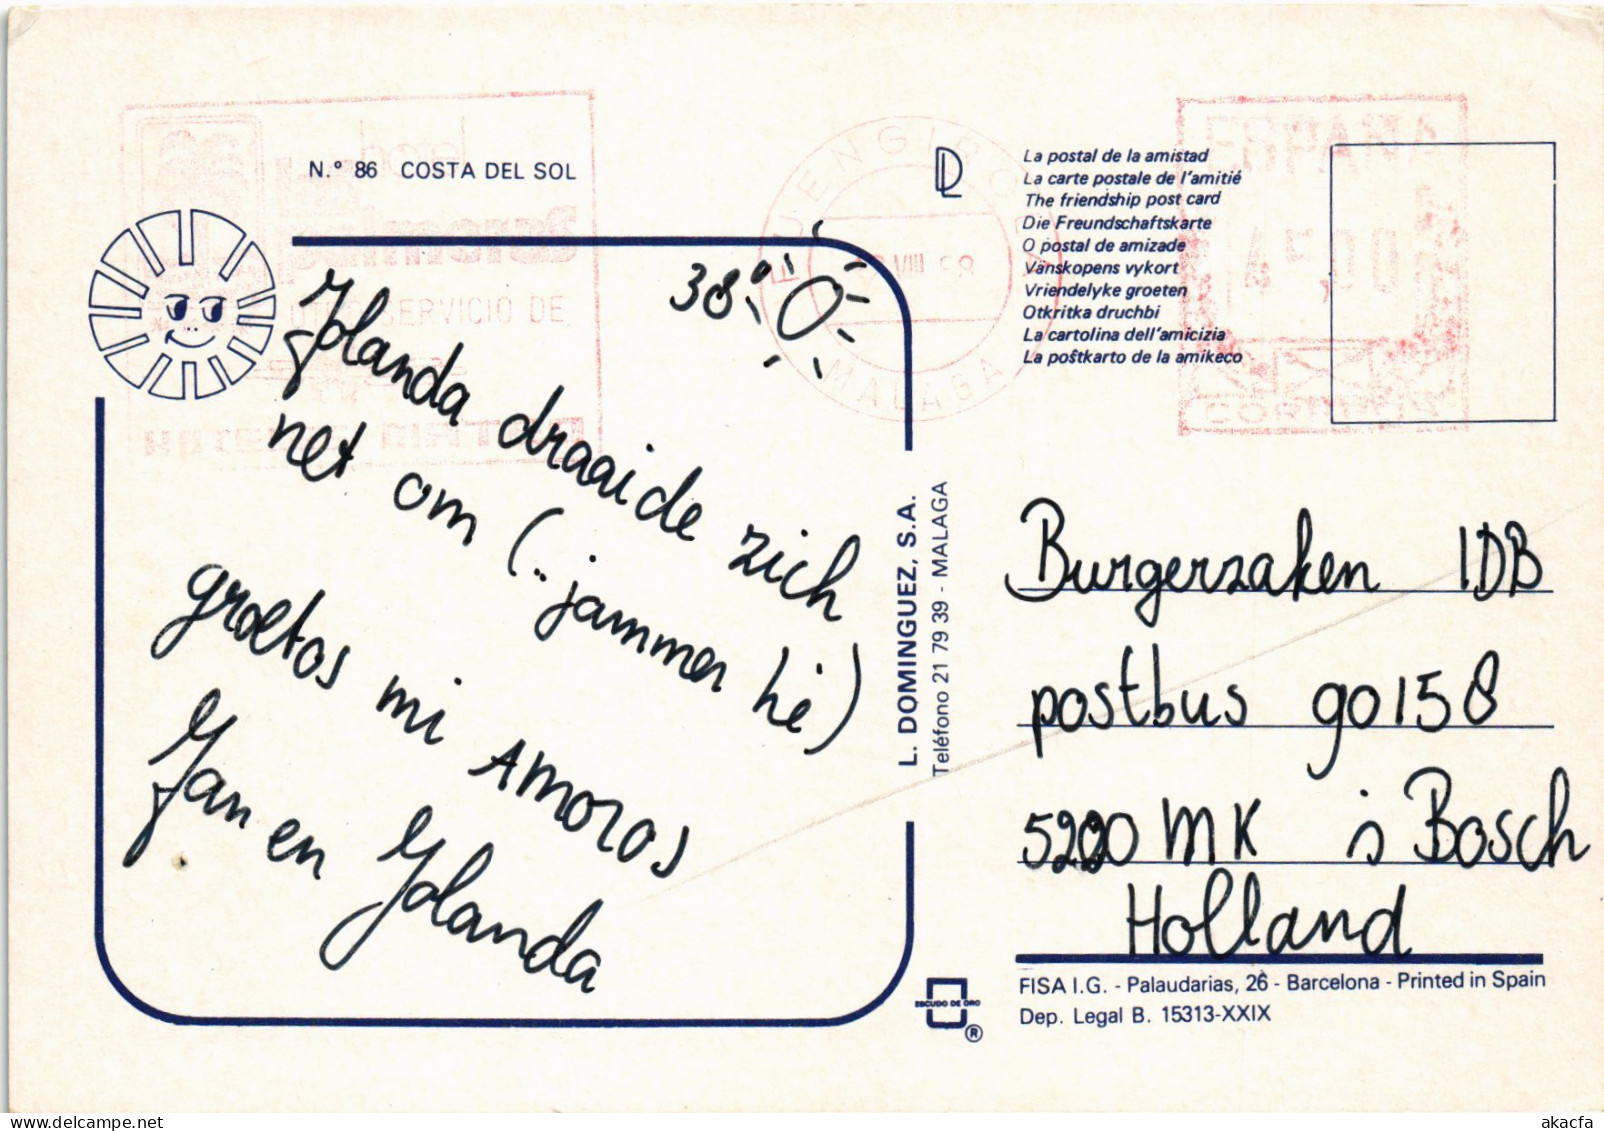 N.º 86 COSTA DEL SOL
38°
Jolanda draaide zich
net om (.. jammer hè)
groetos mi AMOROS
Jan en Jolanda
FUENGIROLA
MALAGA
VIII
ESPAÑA
45,00
CORREOS
SERVICIO DE
La postal de la amistad
La carte postale de l'amitié
The friendship post card
Die Freundschaftskarte
O postal de amizade
Vänskopens vykort
Vriendelyke groeten
Otkritka druchbi
La cartolina dell'amicizia
La poŝtkarto de la amikeco
L. DOMINGUEZ, S.A.
Teléfono 21 79 39 - MALAGA
Burgerzaken IDB
postbus 90158
5200 MK 's Bosch
Holland
ESCUDO DE ORO
®
FISA I.G. - Palaudarias, 26 - Barcelona - Printed in Spain
Dep. Legal B. 15313-XXIX
akacfa